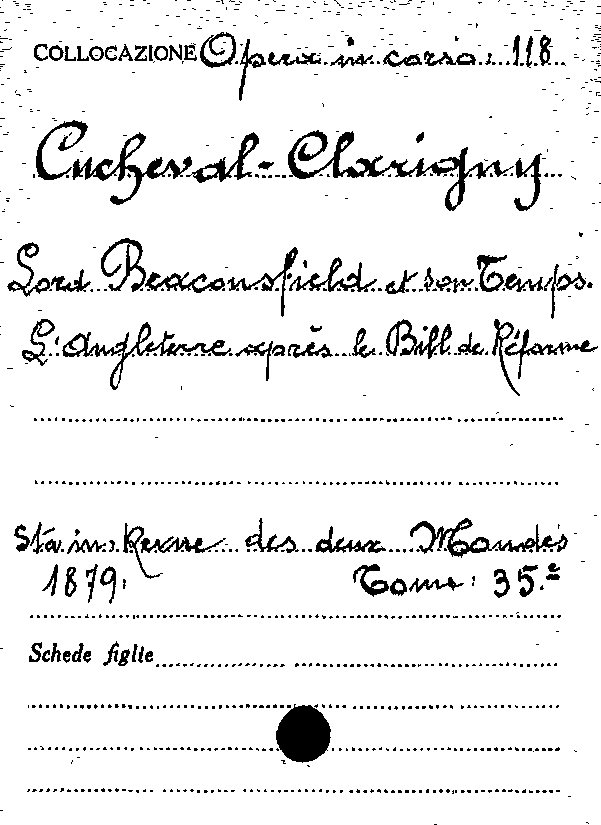 COLLOCAZIONE Opera in corso: 118
Cucheval-Clarigny
Lord Beaconsfield et son Temps.
L'Angleterre après le Bill de Réforme
Sta in: Revue des deux Mondes
1879. Tome: 35.e
Schede figlie